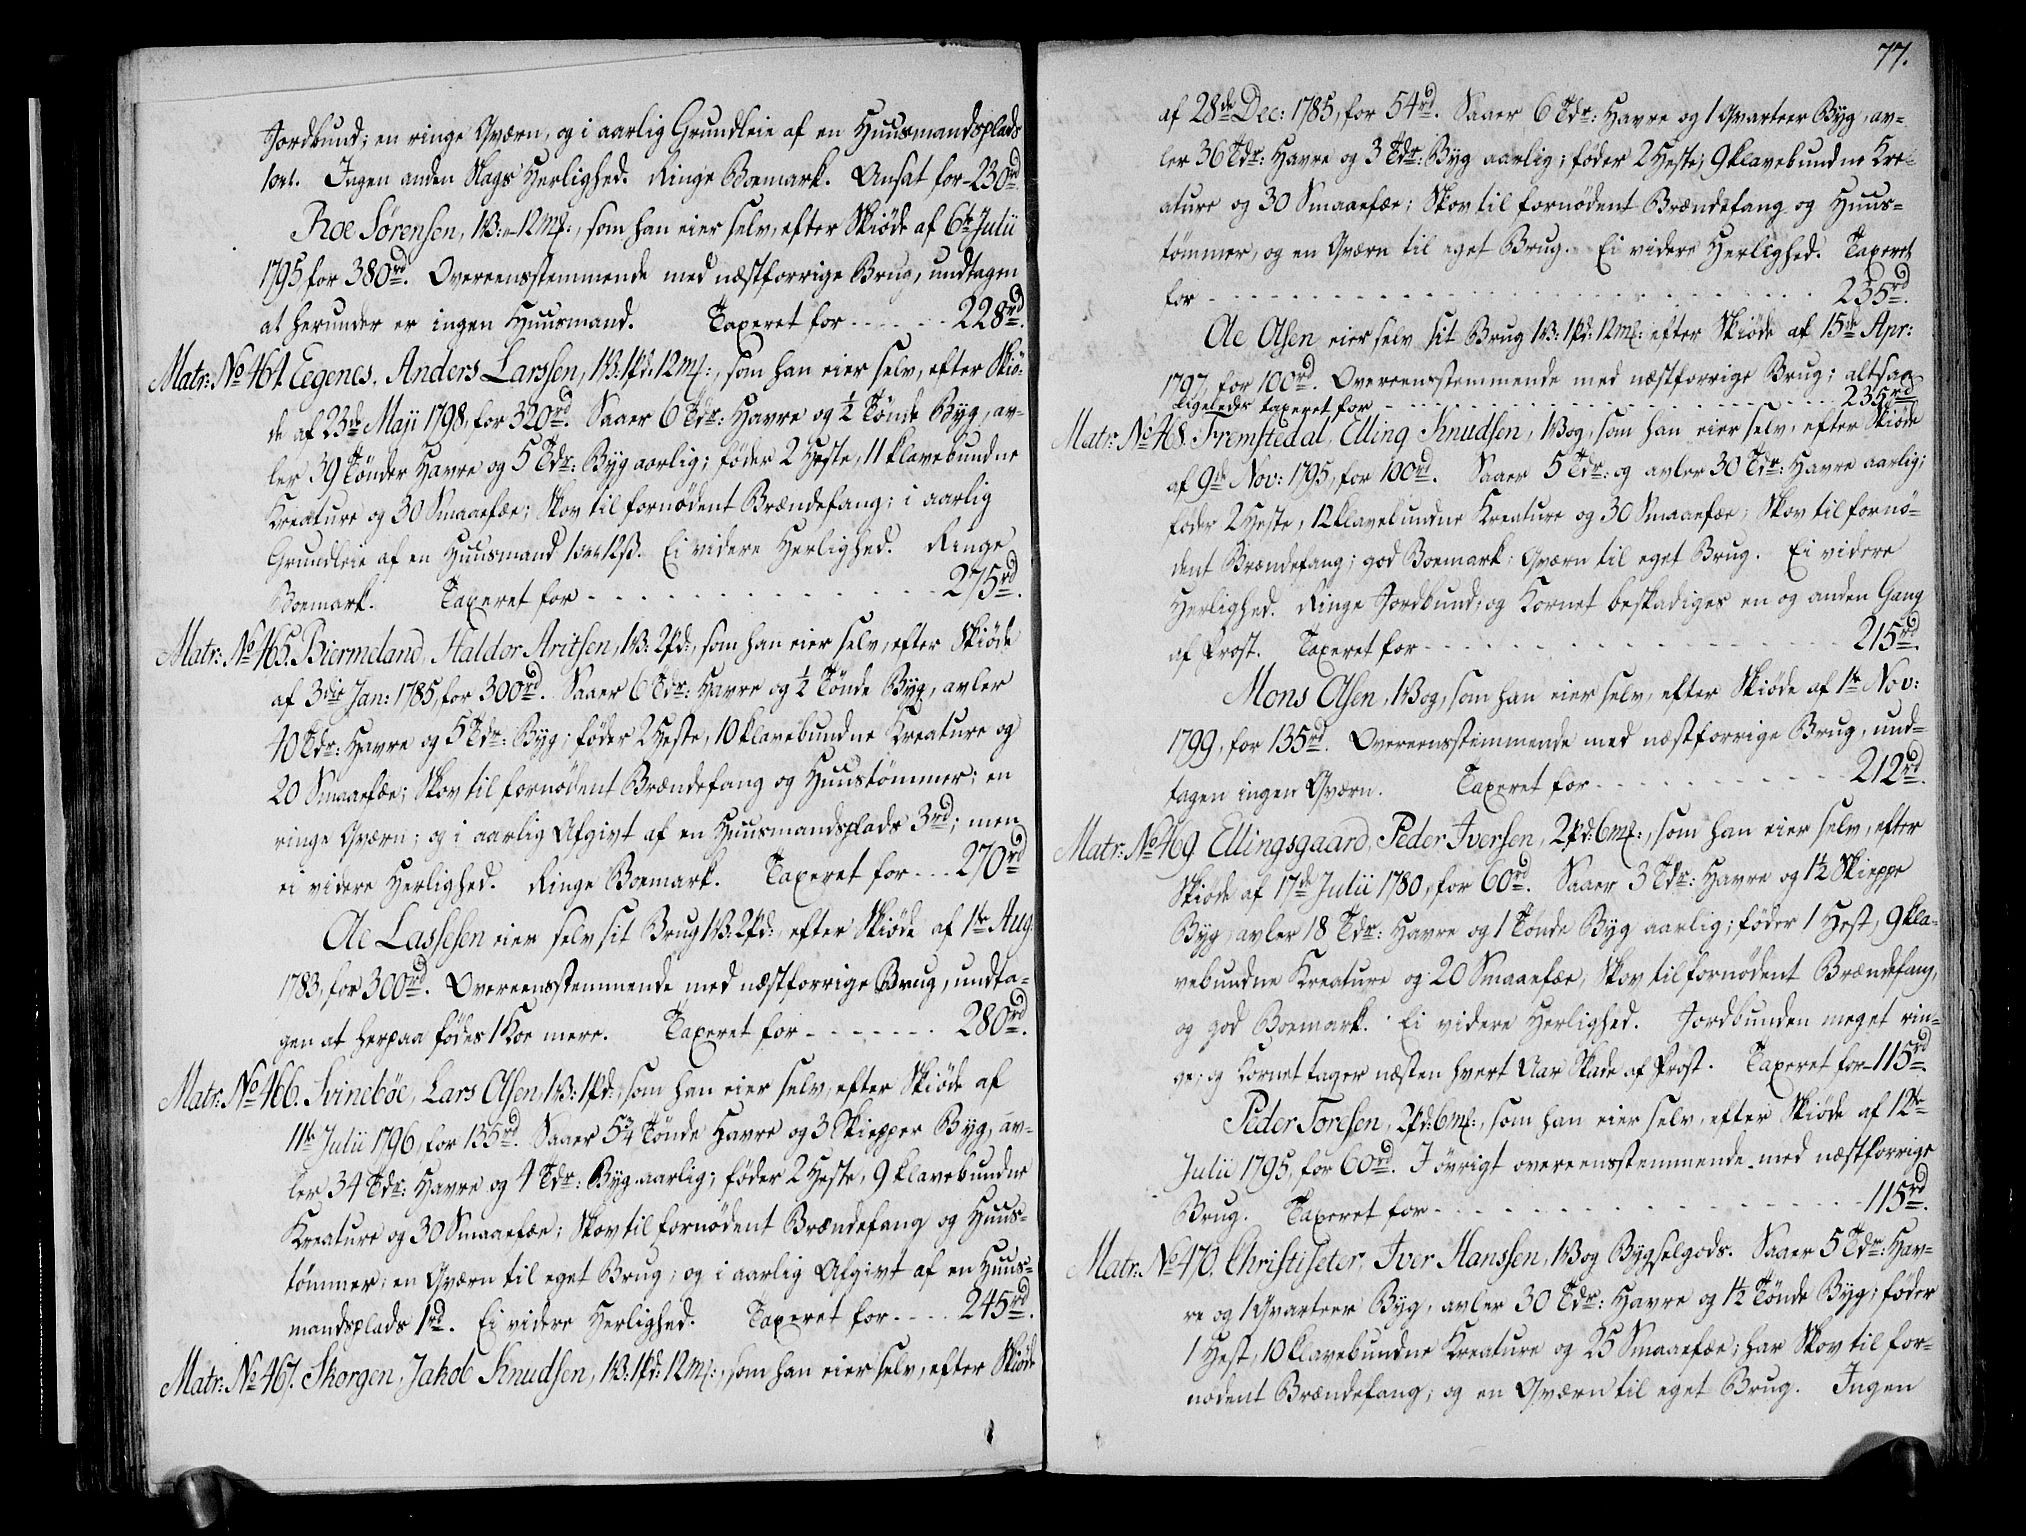 Jordbund; en ringe Qværn, og i aarlig Grundleie af en Huusmandsplads
1ort. Ingen anden Slags Herlighed. Ringe Boemark. Ansat for - 230rd.
Roe Sørensen, 1B: - 12m[:, som han eier selv, efter Skiøde af 6te Julii
1795, for 380rd. Overeensstemmende med næstforrige Brug, undtagen
at herunder er ingen Huusmand. Taxeret for - - - - - 228rd.
Matr: No 464. Eegenes, Anders Larssen, 1B: 1pd: 12m[:, som han eier selv, efter Skiö-
de af 23de Maji 1798, for 320rd. Saaer 6 Tdr: Havre og ½ Tönde Byg, av-
ler 39 Tönder Havre og 5 Tdr: Byg aarlig; föder 2 Heste, 11 klavebundne
Kreature og 30 Smaaefæ; Skov til fornödent Brændefang; i aarlig
Grundleie af en Huusmand 1ort 12ß. Ei videre Herlighed. Ringe
Boemark. Taxeret for - - - - - - - - - - - - 275rd.
Matr: No 465. Biermeland, Haldor Aritsen, 1B: 2pd:, som han eier selv, efter Skiöde
af 3die Jan: 1785, for 300rd. Saaer 6 Tdr: Havre og ½ Tönde Byg, avler
40 Tdr: Havre og 5 Tdr: Byg; föder 2 Heste, 10 klavebundne Kreature og
20 Smaaefæ; Skov til fornödent Brændefang og Huustömmer; en
ringe Qværn; og i aarlig Afgivt af en Huusmandsplads 3rd; men
ei videre Herlighed. Ringe Boemark. Taxeret for - - - 270rd
Ole Lassesen eier selv sit Brug 1B: 2pd:, efter Skiöde af 1te Aug.
1783, for 300rd. Overeensstemmende med næstforrige Brug, undta-
gen at herpaa födes 1 Koe mere. Taxeret for - - - - - - - 280rd.
Matr: No 466. Svinebøe, Lars Olsen, 1B: 1pd:, som han eier selv, efter Skiöde af
11te Julii 1796, for 135rd. Saaer 5¾ Tönde Havre og 3 Skiepper Byg, av-
ler 34 Tdr: Havre og 4 Tdr: Byg aarlig; föder 2 Heste, 9 klavebundne
Kreature og 30 Smaaefæ; Skov til fornödent Brændefang og Huus-
tömmer; en Qværn til eget Brug; og i aarlig Afgivt af en Huus-
mandsplads 1rd. Ei videre Herlighed. Taxeret for - - - - 245rd.
Matr: No 467. Skorgen, Jakob Knudsen, 1B: 1pd: 12m[:, som han eier selv, efter Skiöde
77.
af 28de Dec: 1785, for 54rd. Saaer 6 Tdr: Havre og 1 Qvarteer Byg, av-
ler 36 Tdr: Havre og 3 Tdr: Byg aarlig; föder 2 Heste; 9 klavebundne Kre-
ature og 30 Smaaefæ; Skov til fornödent Brændefang og Huus-
tömmer, og en Qværn til eget Brug. Ei videre Herlighed. Taxeret
for - - - - - - - - - - - - - - - - - - - - 235rd.
Ole Olsen eier selv sit Brug 1B: 1pd: 12m[: efter Skiöde af 15de Apr:
1797, for 100rd. Overeensstemmende med næstforrige Brug; altsaa
ligeledes taxeret for - - - - - - - - - - - - - - 235rd.
Matr: No 468. Tremstedal, Elling Knudsen, 1Bog, som han eier selv, efter Skiöde
af 9de Nov: 1795, for 100rd. Saaer 5 Tdr: og avler 30 Tdr: Havre aarlig;
föder 2 Heste, 12 klavebundne Kreature og 30 Smaaefæ; Skov til fornö-
dent Brændefang; god Boemark; Qværn til eget Brug. Ei videre
Herlighed. Ringe Jordbund; og Kornet beskadiges en og anden Gang
af Frost. Taxeret for - - - - - - - - - - - - - 215rd.
Mons Olsen, 1Bog, som han eier selv, efter Skiöde af 1te Nov:
1799, for 135rd. Overeensstemmende med næstforrige Brug, und-
tagen ingen Qværn. Taxeret for - - - - - - - - - 212rd.
Matr: No 469 Ellingsgaard, Peder Iversen, 2pd: 6m[:, som han eier selv, efter
Skiöde af 17de Julii 1780, for 60rd. Saaer 3 Tdr: Havre og 1½ Skieppe
Byg, avler 18 Tdr: Havre og 1 Tönde Byg aarlig; föder 1 Hest, 9 kla-
vebundne Kreature og 20 Smaaefæ, Skov til fornödent Brændefang,
og god Boemark. Ei videre Herlighed. Jordbunden meget rin-
ge; og Kornet tager næsten hvert Aar Skade af Frost. Taxeret for - 115rd.
Peder Toresen, 2pd: 6m[:, som han eier selv, efter Skiöde af 12te
Julii 1795, for 60rd. I övrigt overeensstemmende med næstforrige
Brug. Taxeret for - - - - - - - - - - - - - - - 115rd.
Matr: No 470. Christiseter, Iver Hanssen, 1Bog Bygselgods. Saaer 5 Tdr: Hav-
re og 1 Qvarteer Byg, avler 30 Tdr: Havre og 1½ Tönde Byg; föder
1 Hest, 10 klavebundne Kreature og 25 Smaaefæ; har Skov til for-
nödent Brændefang; og en Qværn til eget Brug. Ingen